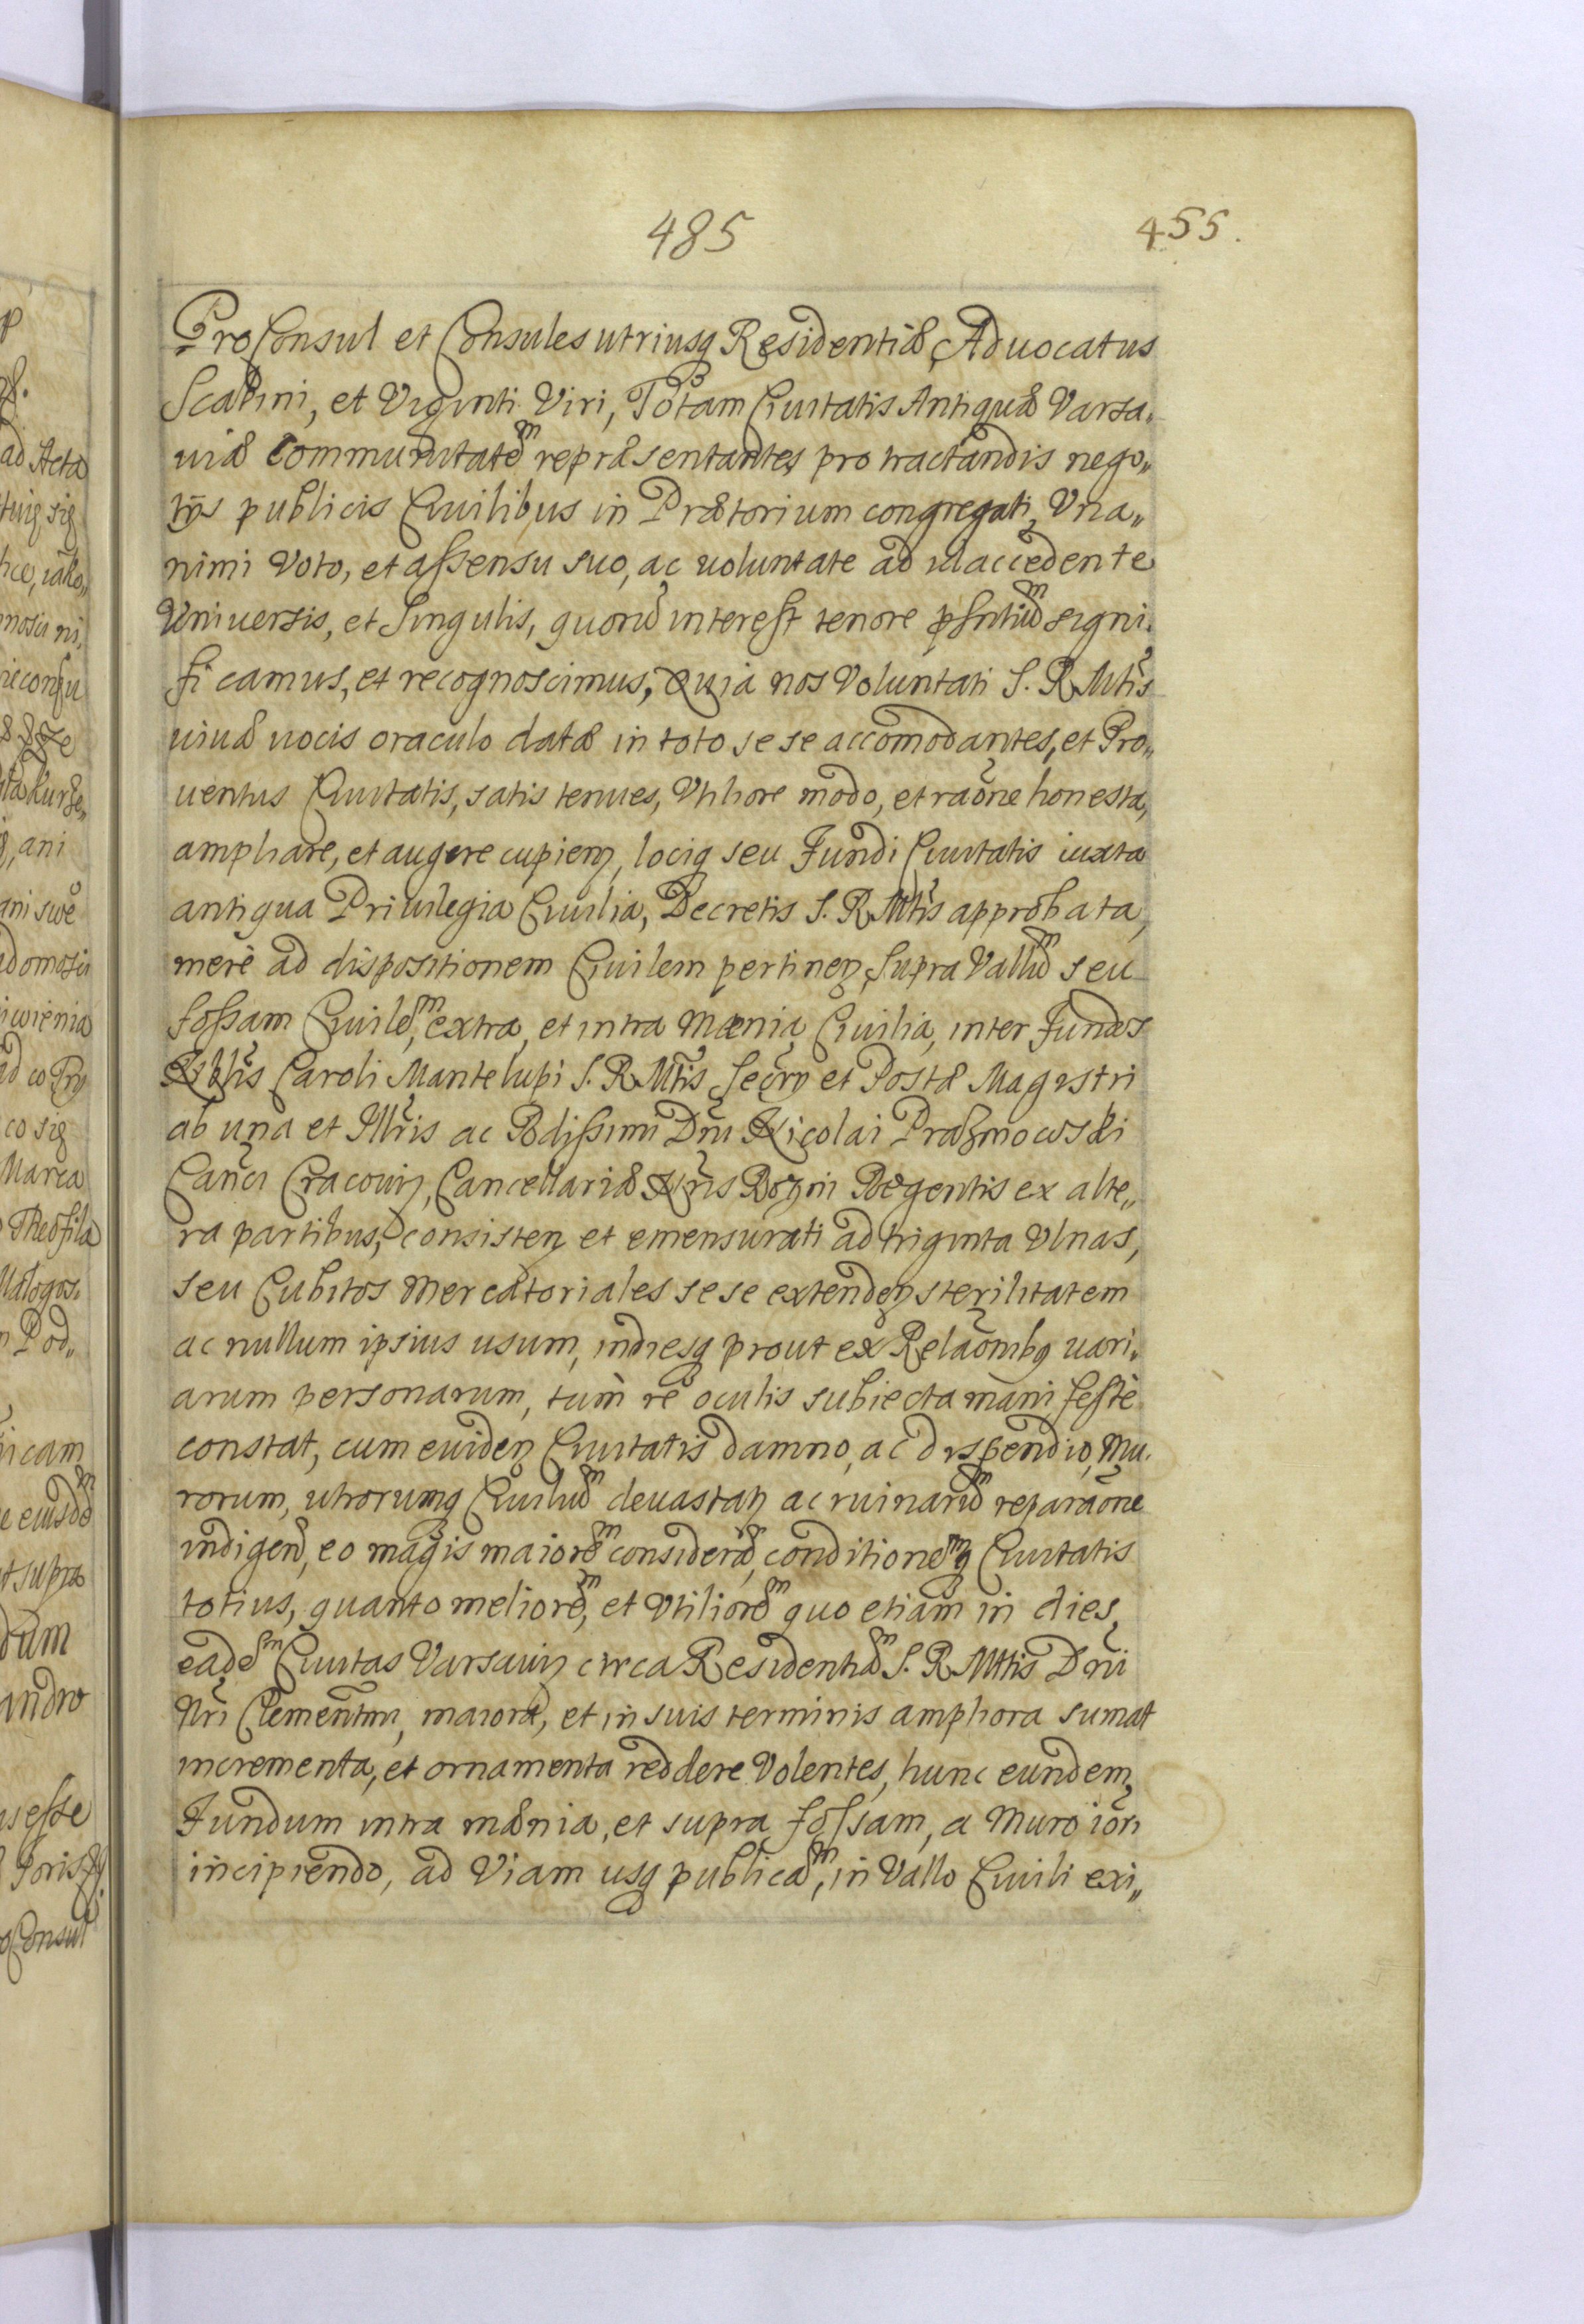 485
455.
ProConsul et Consules utriusq Residentiæ, Aduocatus
Scabini, et Viginti Viri, Totam Ciuitatis Antiquæ Varsa.
uiæ Communitatem repræsentantes pro tractandis nego„
tijs publicis Ciuilibus in Prætorium congregati, Vna„
nimi Voto, et assensu suo, ac uoluntate ad id accedente
Vniuersis, et Singulis, quorum interest tenore pſntium signi.
ficamus, et recognoscimus, Quia nos Voluntati S. R. Mtis
uiuæ uocis oraculo datæ in toto se se accomodantes, et Pro„
uentus Ciuitatis, satis tenues, Vtiliore modo, et raone honesta,
ampliare, et augere cupien, lociq seu Fundi Ciuitatis iuxta
antiqua Priuilegia Ciuilia, Decretis S. R. Mtis approbata,
merè ad dispositionem Ciuilem pertinen, supra Vallum seu
fossam Ciuilem, extra, et intra Mænia Ciuilia, inter Fundos
Nblis Caroli Mantelupi S. R. Mtis Secrij et Postæ Magistri
ab una et Illris ac Rdissimi Dni Nicolai Prażmowski
Canci Cracouien, Cancellariæ Nris Regni Regentis ex alte„
ra partibus, consisten et emensurati ad triginta Vlnas,
seu Cubitos Mercatoriales se se extenden sterilitatem
ac nullum ipsius usum, indiesq prout ex Relaonibq uari.
arum personarum, tum re oculis subiecta manifestè
constat, cum euiden Ciuitatis damno, ac dispendio, Mu.
rorum, utrorumq Ciuilium deuastan ac ruinarum reparaone
indigen, eo magis maiorem consideran, conditionemq Ciuitatis
totius, quanto meliorem, et Vtiliorem quo etiam in dies,
eadem Ciuitas Varsauien circa Residentiam S. R. Mttis Dni
Nri Clementmi, maiora, et in suis terminis ampliora sumat
incrementa, et ornamenta reddere Volentes, hunc eundem
Fundum intra mænia, et supra fossam, a Muro
incipiendo, ad Viam usq publicam, in Vallo Ciuili exi„